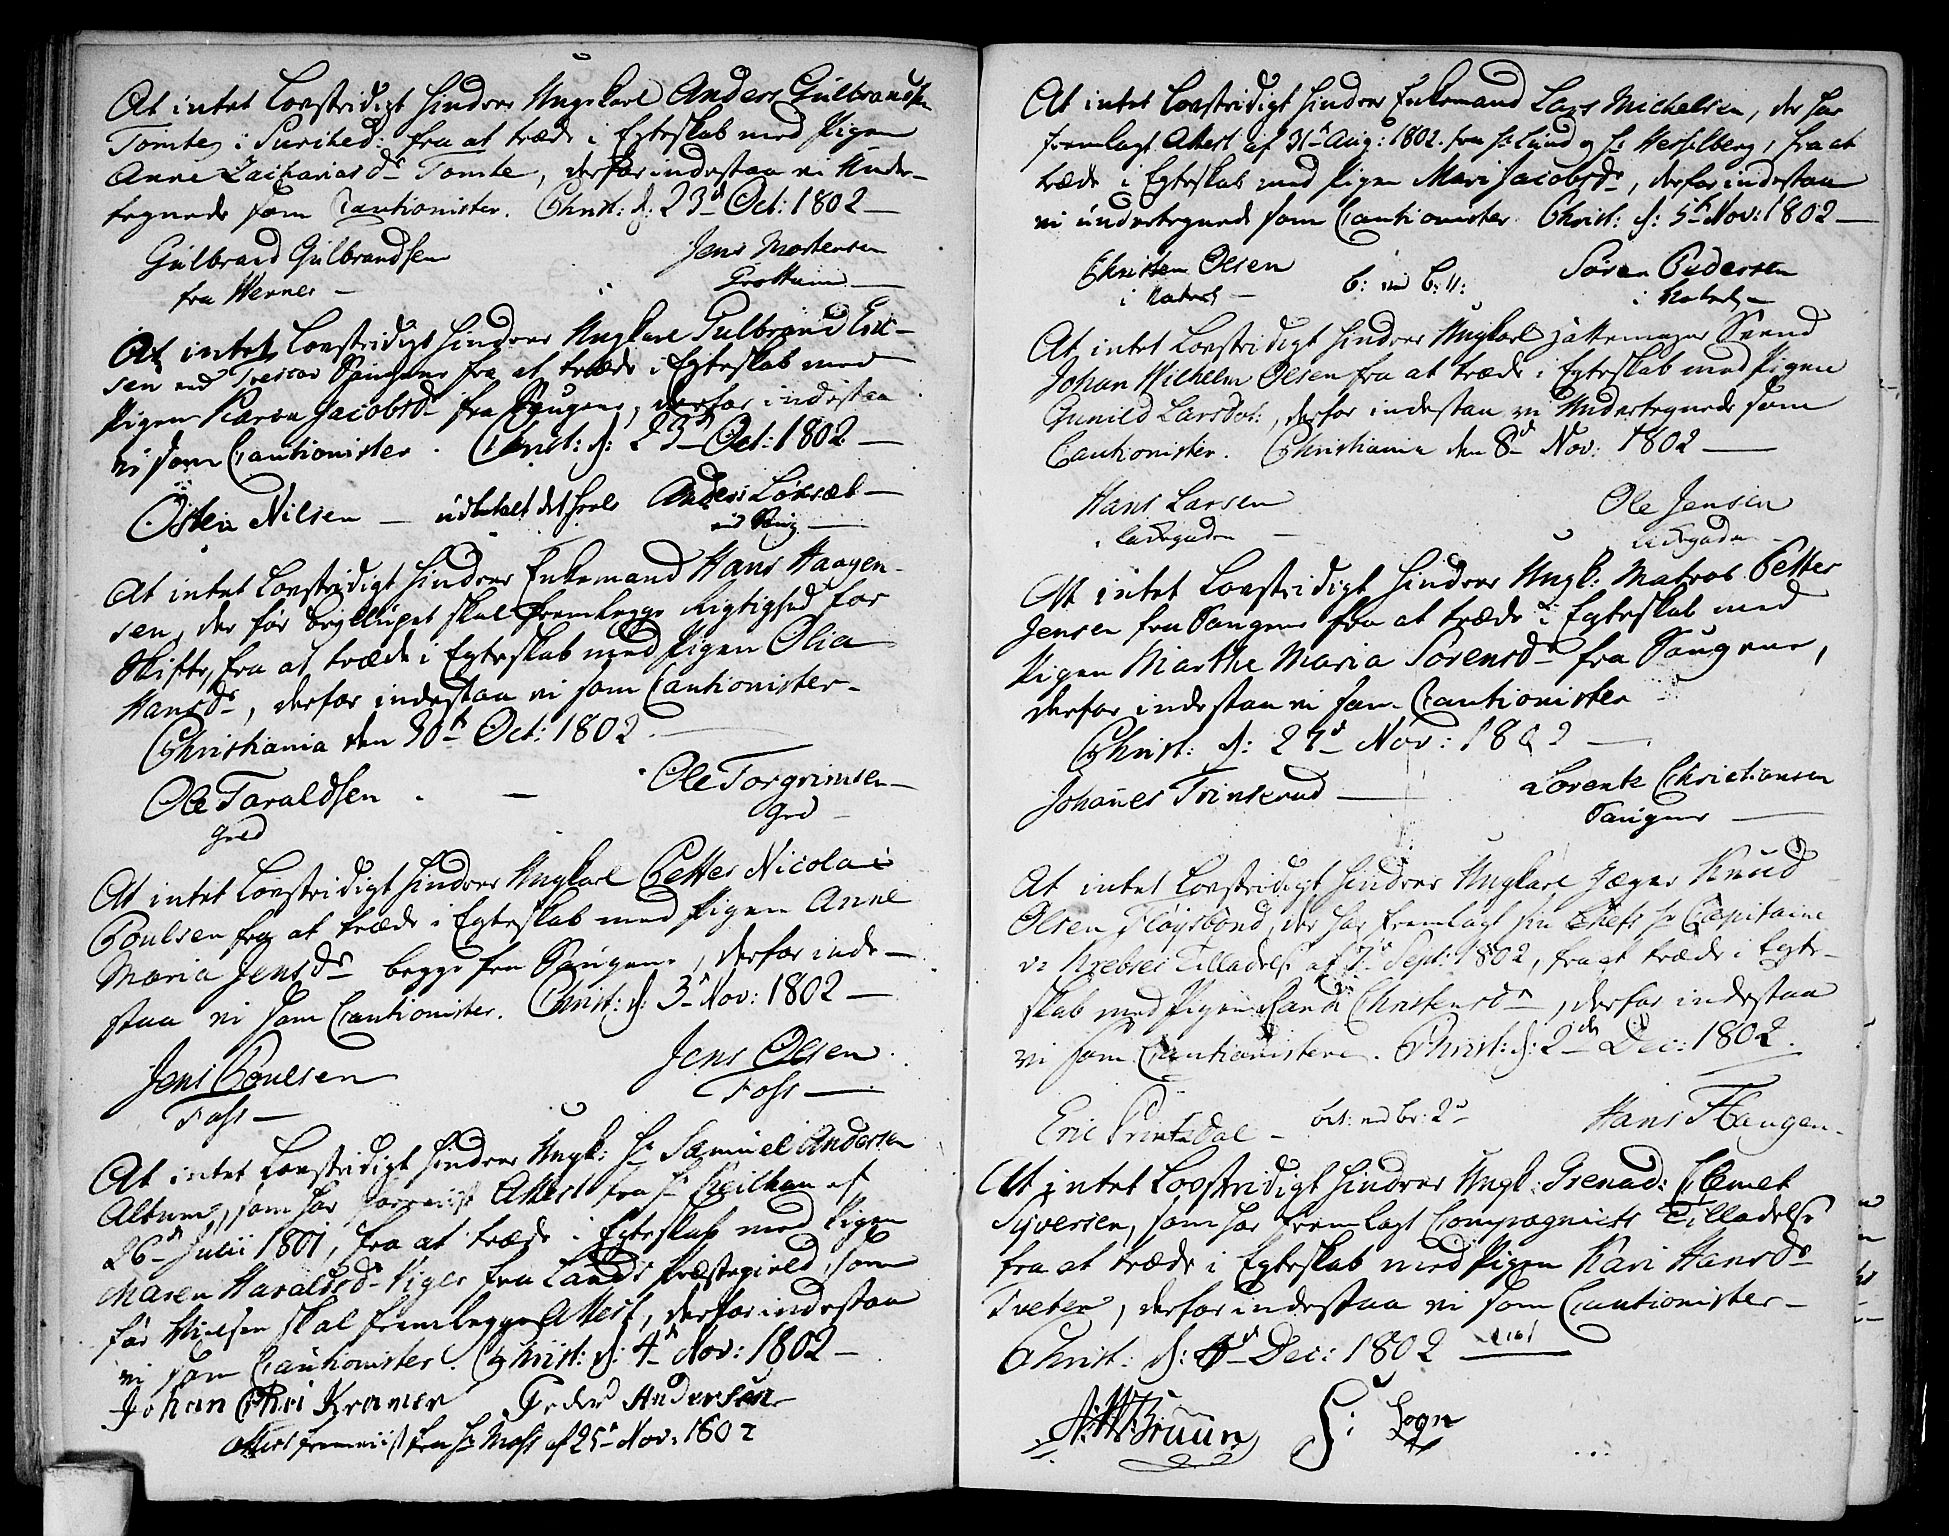 At intet Lovstridigt hindrer Ungekarl Anders Gulbrandsen
Tomte i fra at træde i Egteskab med Pigen
Anne Zacharias Dr Tomte, derfor indestaa vi Under-
tegnede som Cautionister. Christ: d: 23d Oct: 1802 —
Gulbrand Gulbrandsen Jens Mortensen
fra Werner —
At intet Lovstridigt hindrer Ungkarl Gulbrand Eric-
sen ved fra at træde i Egteskab med
Pigen Karen Jacobsdr fra Saugene, derfor indestaa
vi som Cautionister. Christ: d: 23d Oct: 1802 —
Osten Nilsen — Anders
At intet Lovstridigt hindrer Enkemand Hans Haagen-
sen, der før Brylluppet skal fremlegge Rigtighed for
Skifte, fra at træde i Egteskab med Pigen Olia
Hansdr, derfor indestaa vi som Cautionister.
Christiania den 30te Oct: 1802.
Ole Taraldsen — Ole Torgrimsen —
At intet Lovstridigt hindrer Ungkarl Petter Nicolai
Poulsen fra at træde i Egteskab med Pigen Anne
Maria Jensdr begge fra Saugene, derfor inde-
staa vi som Cautionister. Christ: d: 3d Nov: 1802 —
Jens Poulsen Jens Olsen
Foss — Foss —
At intet Lovstridigt hindrer Ungk: Hr Samuel Andersen
Altum, som har foreviist Attest fra Hr Keilhau af
26d Julii 1801, fra at træde i Egteskab med Pigen
Maren Haraldsdr fra Lands Præstegield, som
før Vielsen skal fremlegge Attest, derfor indestaa
vi som Cautionister. Christ: d: 4d Nov: 1802 —
Johan Chri Kramer Peder Andersen
Attest fremviist fra Hr Moss af 25d Nov: 1802
At intet Lovstridigt hindrer Enkemand Lars Michelsen, der har
fremlagt Attest af 31te Aug: 1802. fra Hr Lund og Hr Hesselberg, fra at
træde i Egteskab med Pigen Mari Jacobsdr, derfor indestaa
vi undertegnede som Cautionister Christ: d: 5te Nov: 1802 —
Christen Olsen Søren Pedersen
At intet Lovstridigt hindrer Ungkarl Svend
Johan Wilhelm Olsen fra at træde i Egteskab med Pigen
Gunild Larsdot:, derfor indestaa vi Undertegnede som
Cautionister. Christiania den 8de Nov: 1802 —
Hans Larsen Ole Jensen
Ladegaden — Ladegaden —
At intet Lovstridigt hindrer Ungk: Matros Petter
Jensen fra Saugene fra at træde i Egteskab med
Pigen Marthe Maria Sørensdr fra Saugene,
derfor indestaa vi som Cautionister
Christ: d: 27d Nov: 1802 —
Johanes Trinserud — Lorentz Christiansen
Saugene —
At intet Lovstridigt hindrer Ungkarl Jæger Knud
Olsen Fløysbond, der har fremlagt sin Chefs Hr Capitaine
v: Krebses Tilladelse af 7d Sept: 1802, fra at træde i Egte-
skab med Pigen Christensdr, derfor indestaa
vi som Cautionistere. Christ: d: 2den Dec: 1802.
Eric — Hans Haugen.
At intet Lovstridigt hindrer Ungk: Grenad: Clemet
Syversen, som har fremlagt Compagniets Tilladelse
fra at træde i Egteskab med Pigen Kari Hansdr
Tveter, derfor indestaa vi som Cautionister —
Christ: d: Dec: 1802
Bruun S: Sogn